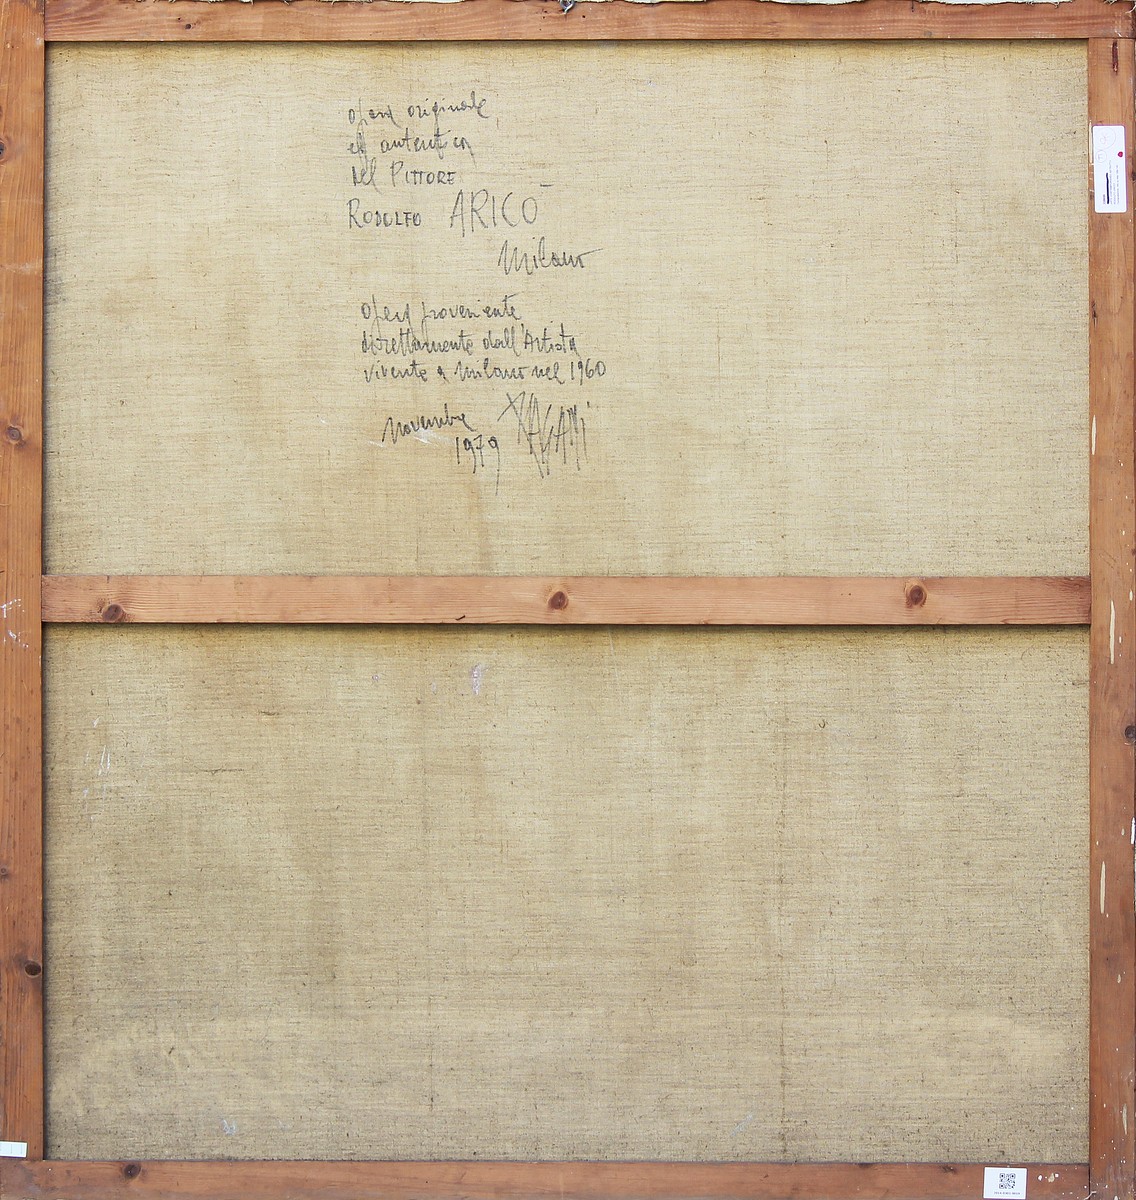 opera originale
ed autentica
del PITTORE
RODOLFO ARICÒ
Milano
opera proveniente
direttamente dall'Artista
vivente a Milano nel 1960
Novembre
1979